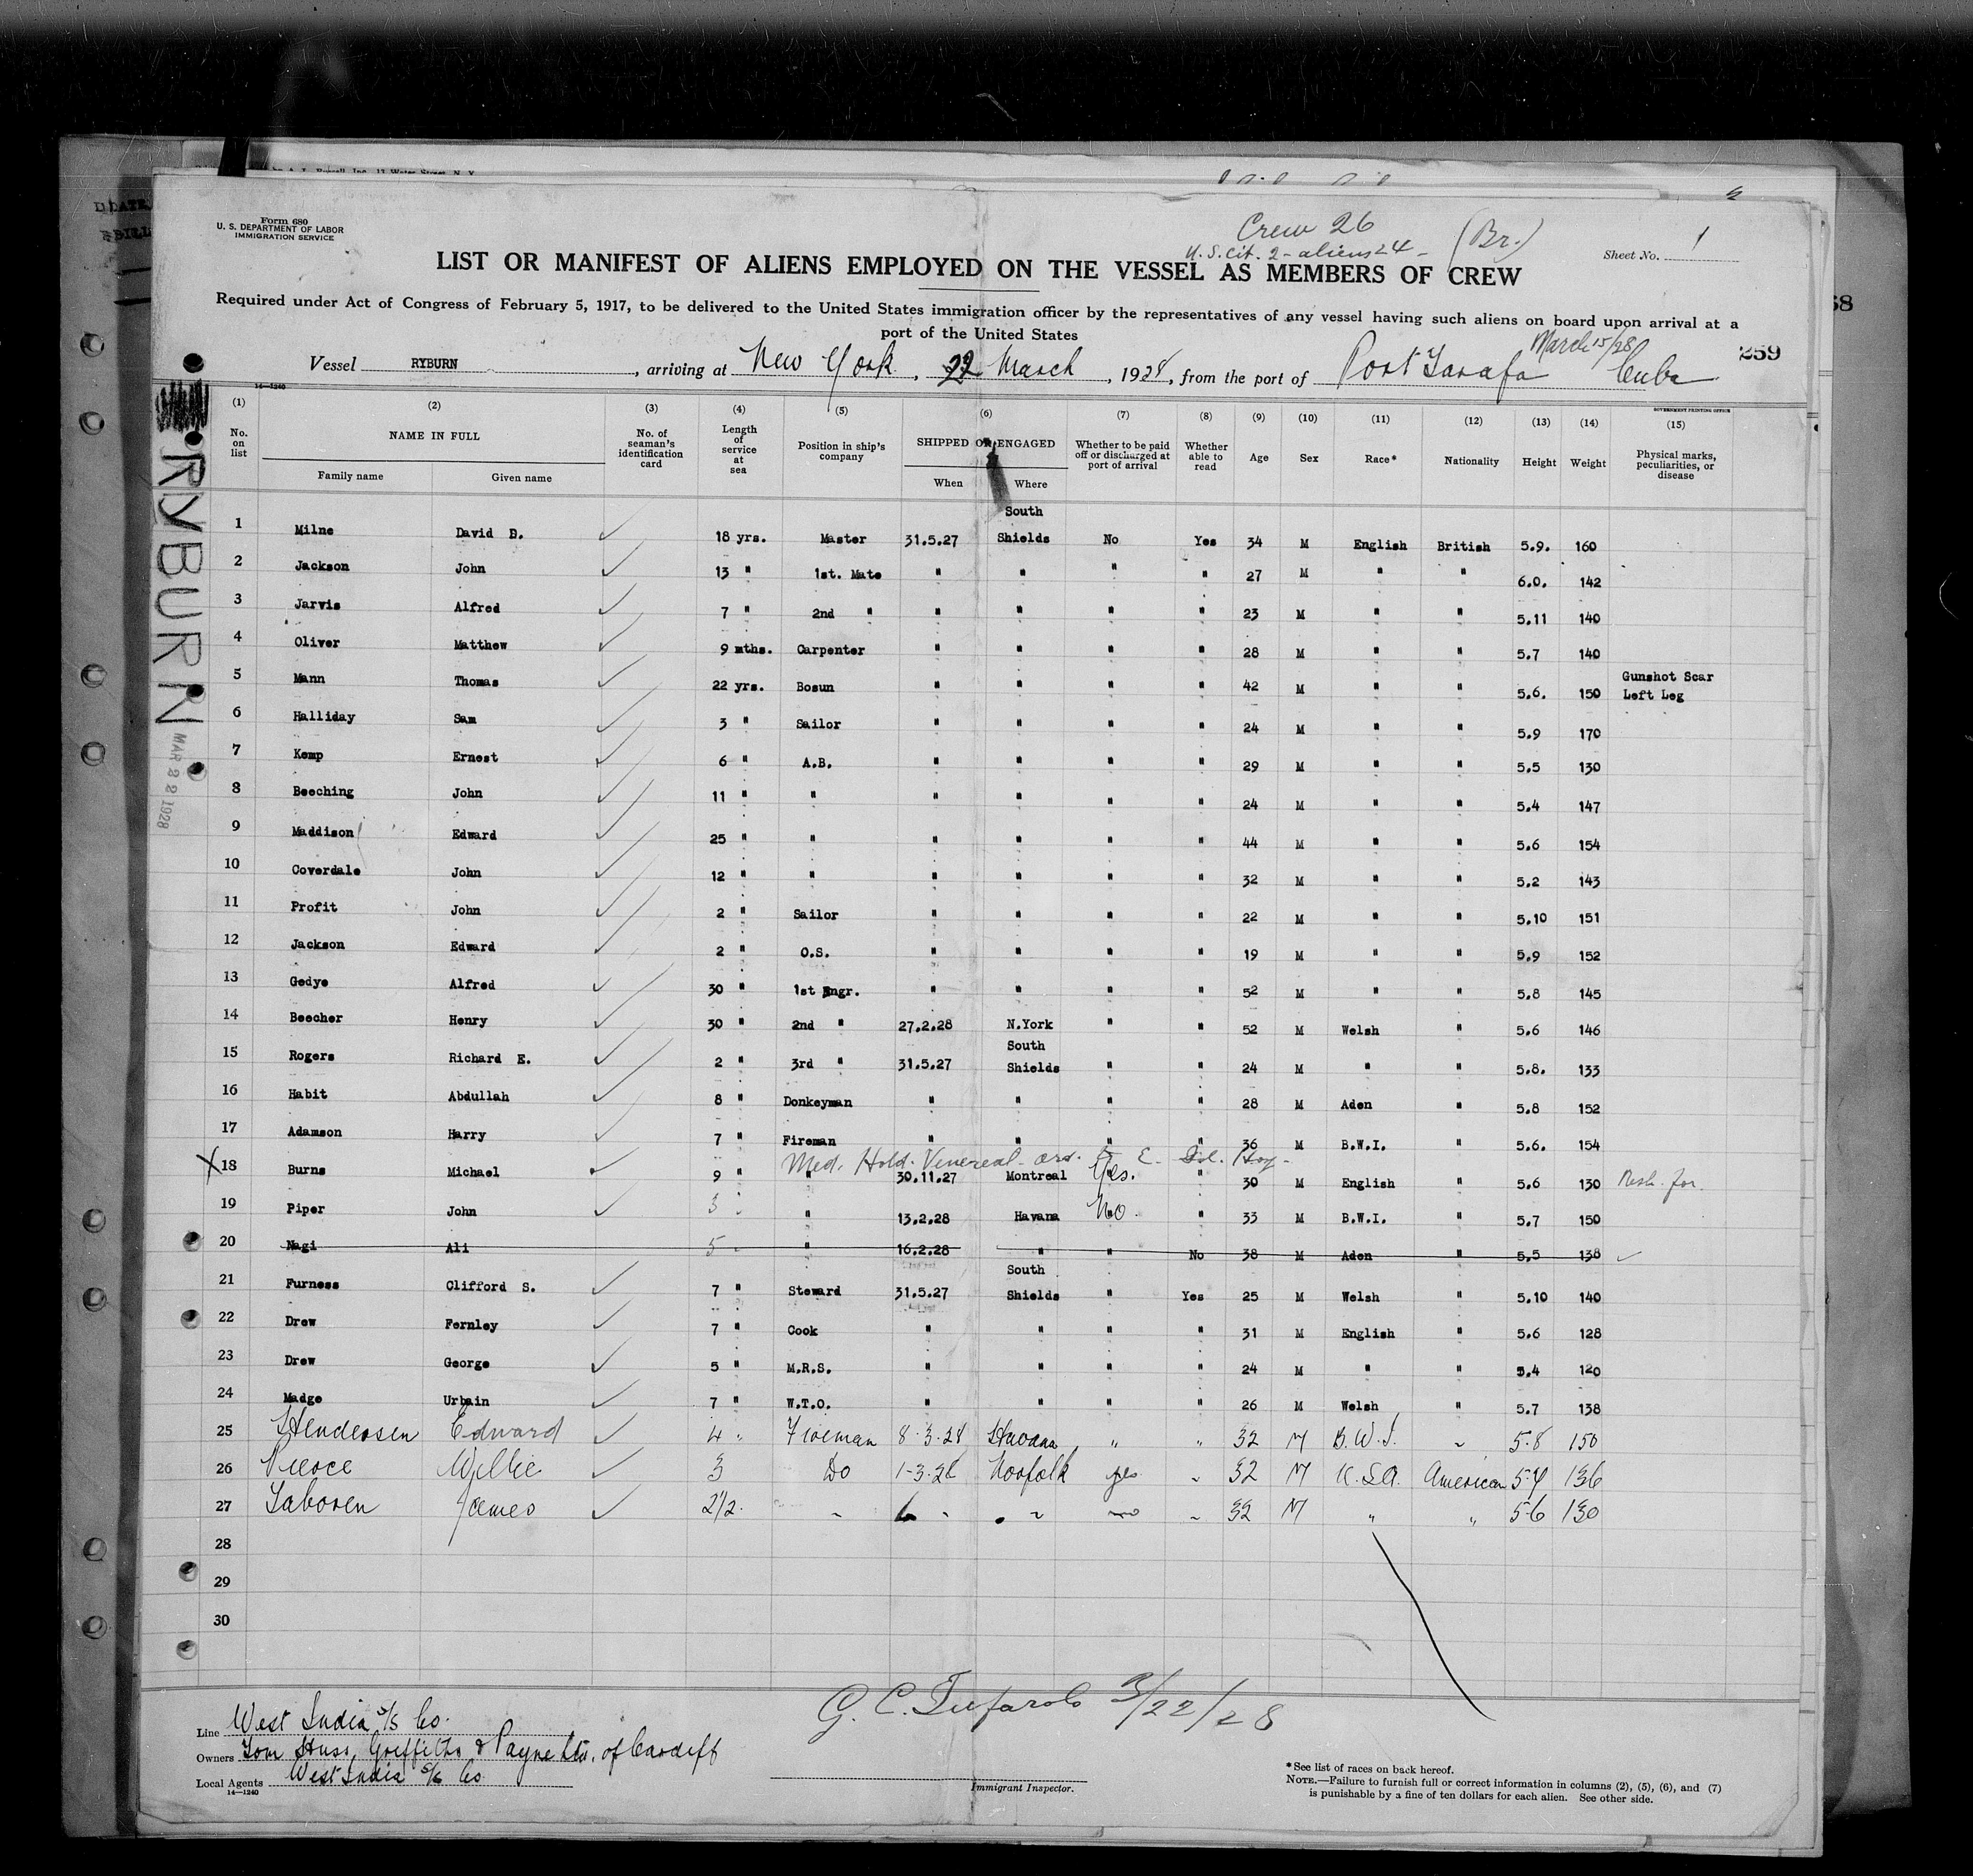 Form 680
U. S. DEPARTMENT OF LABOR
IMMIGRATION SERVICE
Crew 26
U.S. Cit. 2 - aliens 24 - (Br.)
Sheet No. 1
LIST OR MANIFEST OF ALIENS EMPLOYED ON THE VESSEL AS MEMBERS OF CREW
Required under Act of Congress of February 5, 1917, to be delivered to the United States immigration officer by the representatives of any vessel having such aliens on board upon arrival at a
port of the United States
March 15/28
259
Vessel RYBURN, arriving at New York, 22 March, 1928, from the port of Port Tarafa Cuba
14—1240
GOVERNMENT PRINTING OFFICE
(1) (2) (3) (4) (5) (6) (7) (8) (9) (10) (11) (12) (13) (14) (15)
No. on list NAME IN FULL Family name Given name No. of seaman's identification card Length of service at sea Position in ship's company SHIPPED OR ENGAGED When Where Whether to be paid off or discharged at port of arrival Whether able to read Age Sex Race* Nationality Height Weight Physical marks, peculiarities, or disease
RYBURN
MAR 22 1928
1 Milne David D. 18 yrs. Master 31.5.27 South Shields No Yes 34 M English British 5.9. 160
2 Jackson John 13 " 1st. Mate " " " " 27 M " " 6.0. 142
3 Jarvis Alfred 7 " 2nd " " " " " 23 M " " 5.11 140
4 Oliver Matthew 9 mths. Carpenter " " " " 28 M " " 5.7 140
5 Mann Thomas 22 yrs. Bosun " " " " 42 M " " 5.6. 150 Gunshot Scar Left Leg
6 Halliday Sam 3 " Sailor " " " " 24 M " " 5.9 170
7 Kemp Ernest 6 " A.B. " " " " 29 M " " 5.5 130
8 Beeching John 11 " " " " " " 24 M " " 5.4 147
9 Maddison Edward 25 " " " " " " 44 M " " 5.6 154
10 Coverdale John 12 " " " " " " 32 M " " 5.2 143
11 Profit John 2 " Sailor " " " " 22 M " " 5.10 151
12 Jackson Edward 2 " O.S. " " " " 19 M " " 5.9 152
13 Gedye Alfred 30 " 1st Engr. " " " " 52 M " " 5.8 145
14 Beecher Henry 30 " 2nd " 27.2.28 N.York " " 52 M Welsh " 5.6 146
15 Rogers Richard E. 2 " 3rd " 31.5.27 South Shields " " 24 M " " 5.8. 133
16 Habit Abdullah 8 " Donkeyman " " " " 28 M Aden " 5.8 152
17 Adamson Harry 7 " Fireman " " " " 36 M B.W.I. " 5.6. 154
Med. Hold. Venereal
X 18 Burns Michael 9 " " 30.11.27 Montreal Yes. " 30 M English " 5.6 130
19 Piper John 3 " " 13.2.28 Havana No. " 33 M B.W.I. " 5.7 150
20 Nagi Ali 5 " " 16.2.28 " " No 38 M Aden " 5.5 138
21 Furness Clifford S. 7 " Steward 31.5.27 South Shields " Yes 25 M Welsh " 5.10 140
22 Drew Fernley 7 " Cook " " " " 31 M English " 5.6 128
23 Drew George 5 " M.R.S. " " " " 24 M " " 5.4 120
24 Madge Urbain 7 " W.T.O. " " " " 26 M Welsh " 5.7 138
25 Hendersen Edward 4 " Fireman 8.3.28 Havana " " 32 M B.W.I. " 5.8 150
26 Pierce Willie 3 Do 1-3-28 Norfolk yes " 32 M U.S.A. American 5-4 136
27 Taboren James 2 1/2 " " " no " 32 M " " 5-6 130
28
29
30
G. C. Tufarolo 3/22/28
Line West India S/S Co.
Owners Tom Huss, Griffiths & Payne Ltd. of Cardiff
Local Agents West India S/S Co
14—1240
Immigrant Inspector.
* See list of races on back hereof.
NOTE.—Failure to furnish full or correct information in columns (2), (5), (6), and (7)
is punishable by a fine of ten dollars for each alien. See other side.